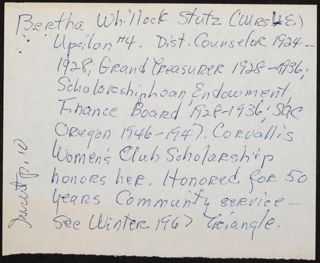 Bertha Whitlock Stutz (Mrs. H.E.)
Upsilon #4. Dist. Counselor 1924-
1928, Grand Treasurer 1928-1936;
Scholarship Loan, Endowment,
Finance Board, 1928-1936; SAC
Oregon 1946-1947. Corvallis
Women's Club Scholarship
honors her. Honored for 50
years Community service-
See Winter 1967 Triangle.
p. 10